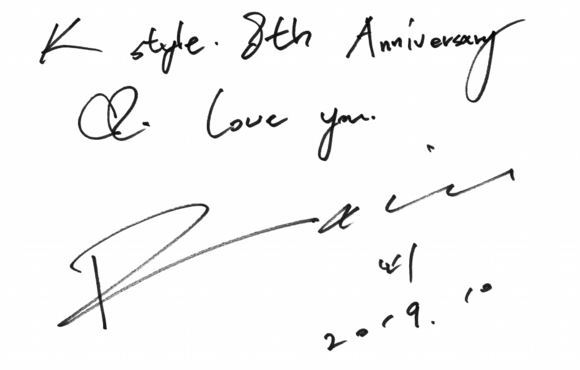 K style. 8th Anniversary
♡. Love you.
Rain
2019. 10